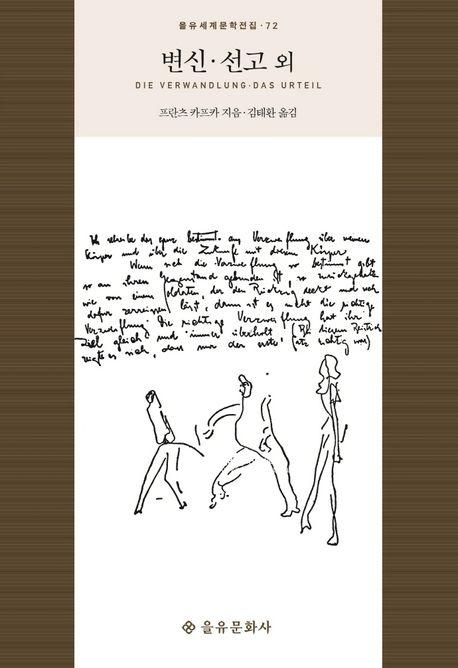 을유세계문학전집·72
변신·선고 외
DIE VERWANDLUNG·DAS URTEIL
프란츠 카프카 지음·김태환 옮김
Ich schreibe das ganz bestimmt aus Verzweiflung über meinen
Körper und über die Zukunft mit diesem Körper
Wenn sich die Verzweiflung so bestimmt gibt
so an ihren Gegenstand gebunden ist, so zurückgehalten
wie von einem Soldaten, der den Rückzug deckt und sich
dafür zerreissen lässt, dann ist es nicht die richtige
Verzweiflung. Die richtige Verzweiflung hat ihr
Ziel gleich und immer überholt, (Bei diesem Beistrich
zeigte es sich, dass nur der erste Satz richtig war)
을유문화사